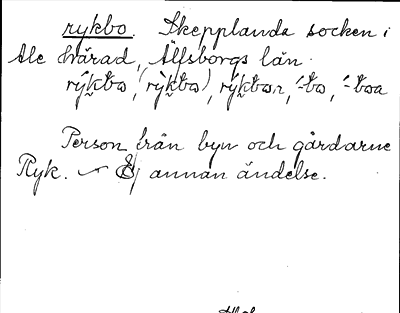 rykbo. Skepplanda socken i
Ale härad, Älfsborgs län.
rýkbo, (rỳkbo), rýkbor, ́-bo, ́-boa
Person från byn och gårdarne
Ryk. — Ej annan ändelse.